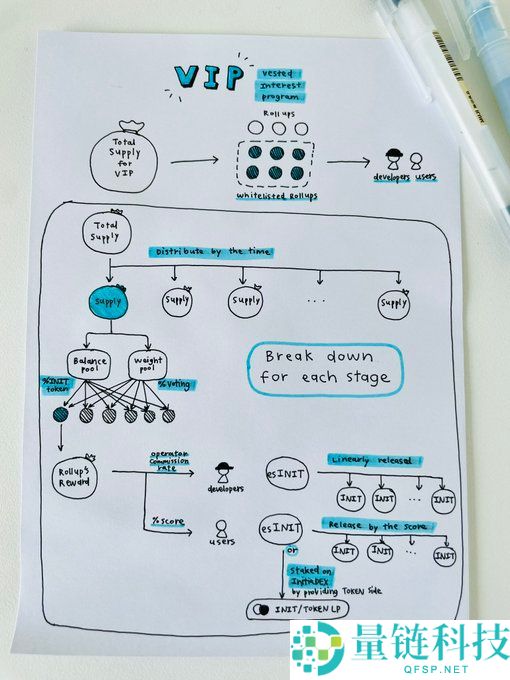 VIP
Vested
Interest
program
Total
Supply
for
VIP
Rollups
whitelisted Rollups
developers users
Total
Supply
Distribute by the time
Supply
Supply
Supply
...
Supply
Balance
pool
Weight
pool
%INIT
token
%Voting
Break down
for each stage
Rollup's
Reward
operator
commission
rate
developers
%score
users
esINIT
Linearly released
INIT
INIT
...
INIT
esINIT
Release by the score
INIT
INIT
...
INIT
or
staked on
InitiaDEX
by providing TOKEN side
INIT/TOKEN LP
量链科技
QFSP.NET